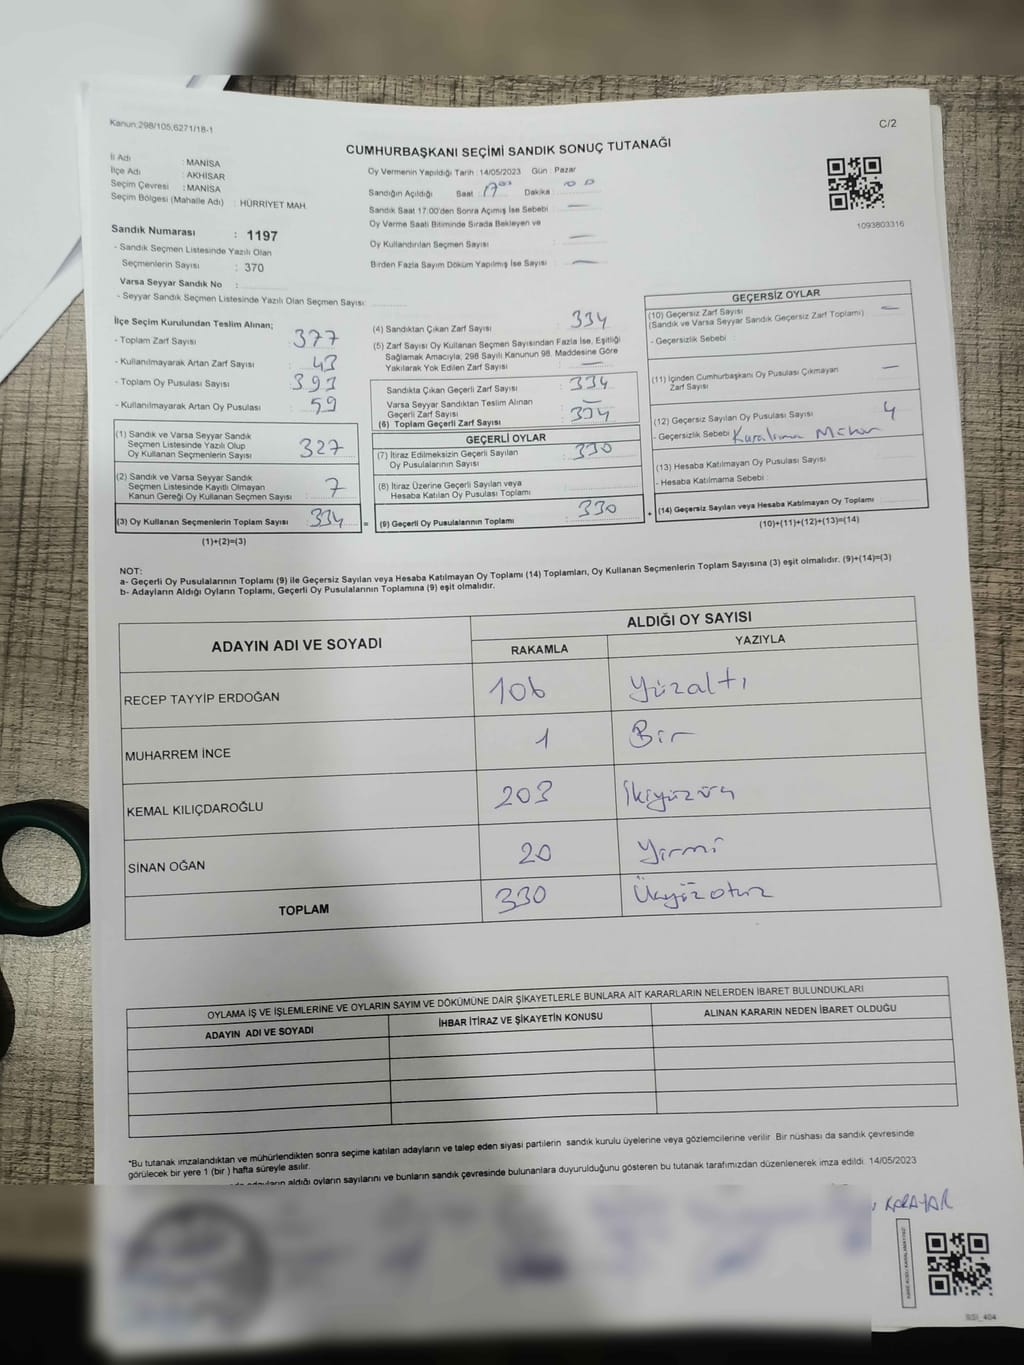 Kanun:298/105,6271/18-1
C/2
CUMHURBAŞKANI SEÇİMİ SANDIK SONUÇ TUTANAĞI
İl Adı : MANİSA
İlçe Adı : AKHİSAR
Seçim Çevresi : MANİSA
Seçim Bölgesi (Mahalle Adı) : HÜRRİYET MAH.
Sandık Numarası : 1197
- Sandık Seçmen Listesinde Yazılı Olan
Seçmenlerin Sayısı : 370
Varsa Seyyar Sandık No :
- Seyyar Sandık Seçmen Listesinde Yazılı Olan Seçmen Sayısı:
Oy Vermenin Yapıldığı Tarih : 14/05/2023 Gün : Pazar
Sandığın Açıldığı Saat : 17 00 Dakika : 00
Sandık Saat 17:00'den Sonra Açımış İse Sebebi : —
Oy Verme Saati Bitiminde Sırada Bekleyen ve
Oy Kullandırılan Seçmen Sayısı : —
Birden Fazla Sayım Döküm Yapılmış İse Sayısı : —
1093803316
İlçe Seçim Kurulundan Teslim Alınan;
- Toplam Zarf Sayısı : 377
- Kullanılmayarak Artan Zarf Sayısı : 43
- Toplam Oy Pusulası Sayısı : 393
- Kullanılmayarak Artan Oy Pusulası : 59
(1) Sandık ve Varsa Seyyar Sandık
Seçmen Listesinde Yazılı Olup
Oy Kullanan Seçmenlerin Sayısı : 327
(2) Sandık ve Varsa Seyyar Sandık
Seçmen Listesinde Kayıtlı Olmayan
Kanun Gereği Oy Kullanan Seçmen Sayısı : 7
(3) Oy Kullanan Seçmenlerin Toplam Sayısı : 334 =
(1)+(2)=(3)
(4) Sandıktan Çıkan Zarf Sayısı : 334
(5) Zarf Sayısı Oy Kullanan Seçmen Sayısından Fazla İse, Eşitliği
Sağlamak Amacıyla; 298 Sayılı Kanunun 98. Maddesine Göre
Yakılarak Yok Edilen Zarf Sayısı : —
Sandıkta Çıkan Geçerli Zarf Sayısı : 334
Varsa Seyyar Sandıktan Teslim Alınan
Geçerli Zarf Sayısı : —
(6) Toplam Geçerli Zarf Sayısı : 334
GEÇERLİ OYLAR
(7) İtiraz Edilmeksizin Geçerli Sayılan
Oy Pusulalarının Sayısı : 330
(8) İtiraz Üzerine Geçerli Sayılan veya
Hesaba Katılan Oy Pusulası Toplamı :
(9) Geçerli Oy Pusulalarının Toplamı : 330 +
GEÇERSİZ OYLAR
(10) Geçersiz Zarf Sayısı : —
(Sandık ve Varsa Seyyar Sandık Geçersiz Zarf Toplamı)
- Geçersizlik Sebebi :
(11) İçinden Cumhurbaşkanı Oy Pusulası Çıkmayan
Zarf Sayısı : —
(12) Geçersiz Sayılan Oy Pusulası Sayısı : 4
- Geçersizlik Sebebi :
(13) Hesaba Katılmayan Oy Pusulası Sayısı :
- Hesaba Katılmama Sebebi :
(14) Geçersiz Sayılan veya Hesaba Katılmayan Oy Toplamı :
(10)+(11)+(12)+(13)=(14)
NOT:
a- Geçerli Oy Pusulalarının Toplamı (9) ile Geçersiz Sayılan veya Hesaba Katılmayan Oy Toplamı (14) Toplamları, Oy Kullanan Seçmenlerin Toplam Sayısına (3) eşit olmalıdır. (9)+(14)=(3)
b- Adayların Aldığı Oyların Toplamı, Geçerli Oy Pusulalarının Toplamına (9) eşit olmalıdır.
ADAYIN ADI VE SOYADI
ALDIĞI OY SAYISI
RAKAMLA YAZIYLA
RECEP TAYYİP ERDOĞAN 106 Yüzaltı
MUHARREM İNCE 1 Bir
KEMAL KILIÇDAROĞLU 203 İkiyüzüç
SİNAN OĞAN 20 Yirmi
TOPLAM 330 Üçyüzotuz
OYLAMA İŞ VE İŞLEMLERİNE VE OYLARIN SAYIM VE DÖKÜMÜNE DAİR ŞİKAYETLERLE BUNLARA AİT KARARLARIN NELERDEN İBARET BULUNDUKLARI
ADAYIN ADI VE SOYADI İHBAR İTİRAZ VE ŞİKAYETİN KONUSU ALINAN KARARIN NEDEN İBARET OLDUĞU
*Bu tutanak imzalandıktan ve mühürlendikten sonra seçime katılan adayların ve talep eden siyasi partilerin sandık kurulu üyelerine veya gözlemcilerine verilir. Bir nüshası da sandık çevresinde
görülecek bir yere 1 (bir) hafta süreyle asılır.
aldığı oyların sayılarını ve bunların sandık çevresinde bulunanlara duyurulduğunu gösteren bu tutanak tarafımızdan düzenlenerek imza edildi. 14/05/2023